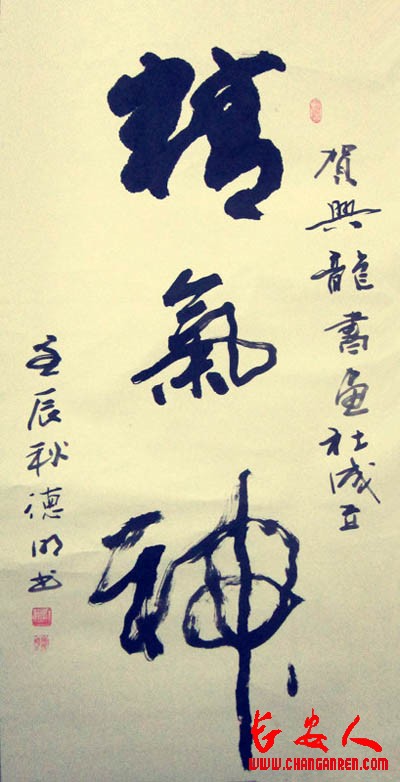 賀興龍書畫社成立
精氣神
壬辰秋德明书
长安人
WWW.CHANGANREN.COM